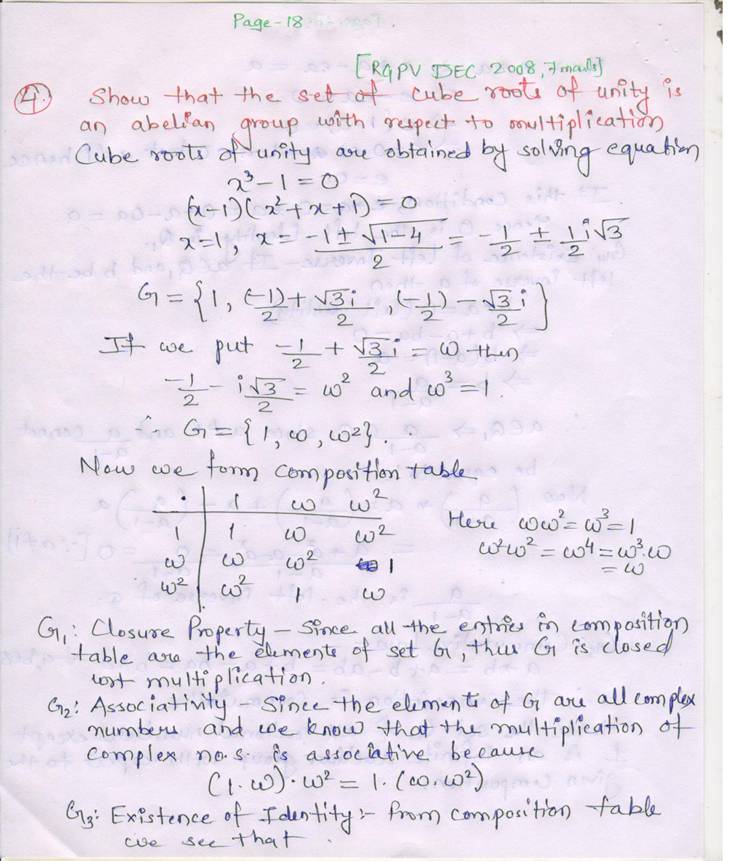 Page-18.
[RGPV DEC 2008, 7 marks]
4. Show that the set of cube roots of unity is
an abelian group with respect to multiplication
Cube roots of unity are obtained by solving equation
x³ - 1 = 0
(x-1)(x²+x+1) = 0
x=1, x = (-1 ± √(1-4))/2 = -1/2 ± 1/2 i√3
G = {1, (-1)/2 + √3i/2, (-1/2) - √3i/2}
If we put -1/2 + √3i/2 = ω then
-1/2 - i√3/2 = ω² and ω³ = 1.
∴ G = {1, ω, ω²}.
Now we form composition table
· | 1 ω ω²
1 | 1 ω ω² Here ωω² = ω³ = 1
ω | ω ω² 1 ω²ω² = ω⁴ = ω³.ω
ω² | ω² 1 ω = ω
G₁: Closure Property - Since all the entries in composition
table are the elements of set G, thus G is closed
wrt multiplication.
G₂: Associativity - Since the elements of G are all complex
numbers and we know that the multiplication of
complex no.s. is associative because
(1.ω).ω² = 1.(ω.ω²)
G₃: Existence of Identity :- from composition table
we see that.